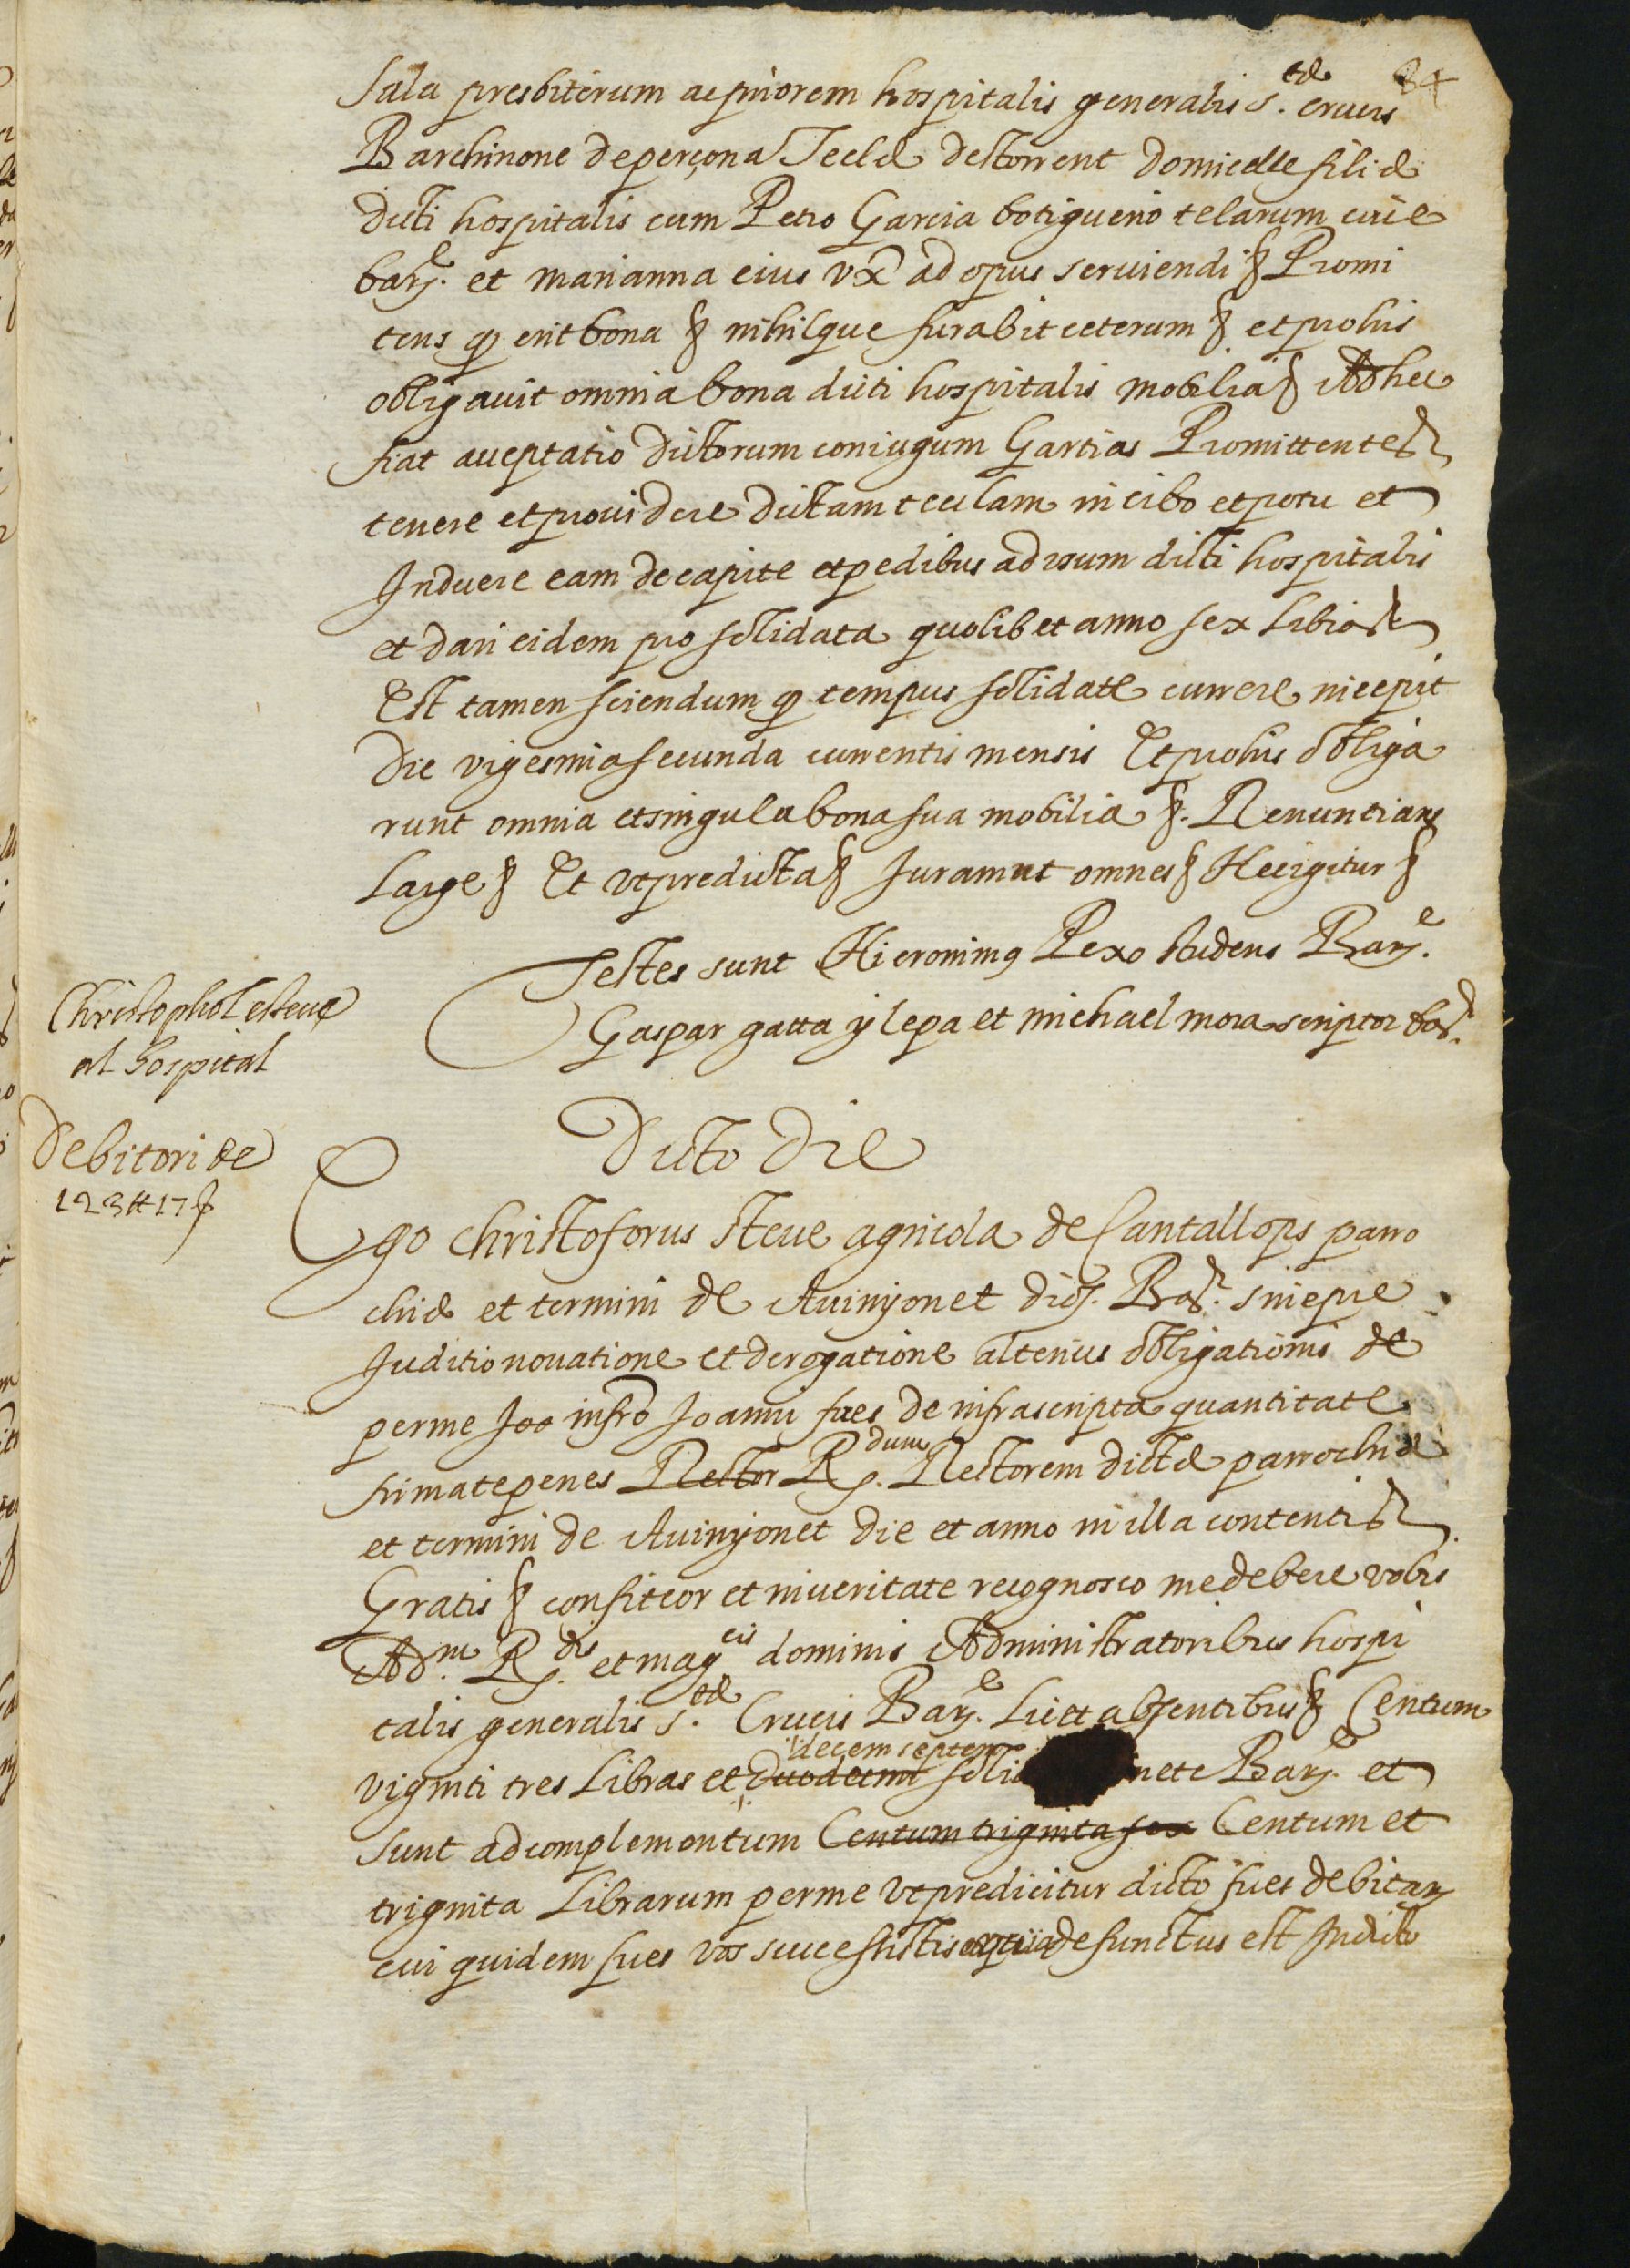 84
Sala presbiterum ac priorem hospitalis generalis S.tæ crucis
Barchinone de perçona Teclæ destorrent Domicelle filiæ
dicti hospitalis cum Petro Garcia botiguerio telarum civie
barȝ.e et marianna eius vx̃ ad opus serviendi ꝭ Promi
tens ꝙ erit bona ꝭ nihilque furabit ceterum ꝭ et pro his
obligavit omnia bona dicti hospitalis mobilia ꝭ Ad hec
fiat acceptatio dictorum coniugum Gartias Promittentes
tenere et providere dictam teclam in cibo et potu et
Induere eam de capite et pedibus ad usum dicti hospitalis
et dari eidem pro solidata quolibet anno sex Libras
Est tamen sciendum ꝙ tempus solidate currere incepit
die vigesima secunda currentis mensis Et pro his obliga
runt omnia et singula bona sua mobilia ꝭ. Renuntians
Large ꝭ Et ut predicta ꝭ Juramut omnes ꝭ Hec igitur ꝭ
Testes sunt Hieronimꝰ Pexo studens Barȝ.e
Gaspar gatta y lepa et michael mora scriptor bar.
Christophol esteve
al hospital
Debitori de
123 ₶ 17 ꝭ
Dicto Die
Ego Christoforus Steve agricola de Cantallops parro
chiæ et termini de Avinyonet dioȝ. Bar. sine pre
Juditio novatione et derogatione alterius obligationis de
per me Joo infro Joanni fues de infrascripta quantitate
firmate penes Rector R.dum Rectorem dictæ parrochiæ
et termini de Avinyonet die et anno in illa contentis
Gratis ꝭ confiteor et in veritate recognosco me debere vobis
Ad.m R.dis et mag.cis dominis Administratoribus hospi
talis generalis S.tæ Crucis Barȝ.e Licet absentibus ꝭ Centum
decem septem
viginti tres Libras et duodecim soli nete Barȝ.e et
sunt ad complementum Centum triginta sex Centum et
triginta Librarum per me ut predicitur dicto fues debitarȝ
cui quidem fues vos successistis defunctus est In dicto